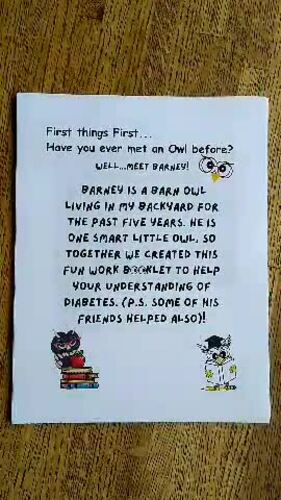 First things First...
Have you ever met an Owl before?
WELL...MEET BARNEY!
BARNEY IS A BARN OWL
LIVING IN MY BACKYARD FOR
THE PAST FIVE YEARS. HE IS
ONE SMART LITTLE OWL, SO
TOGETHER WE CREATED THIS
FUN WORK BOOKLET TO HELP
YOUR UNDERSTANDING OF
DIABETES. (P.S. SOME OF HIS
FRIENDS HELPED ALSO)!